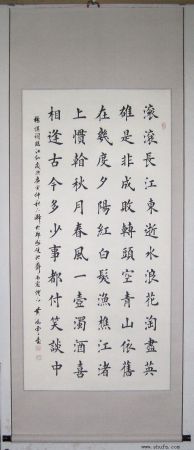 滾滾長江東逝水浪花淘盡英
雄是非成敗轉頭空青山依舊
在幾度夕陽紅白髮漁樵江渚
上慣看秋月春風一壺濁酒喜
相逢古今多少事都付笑談中
楊慎詞臨江仙
www.shufa.com